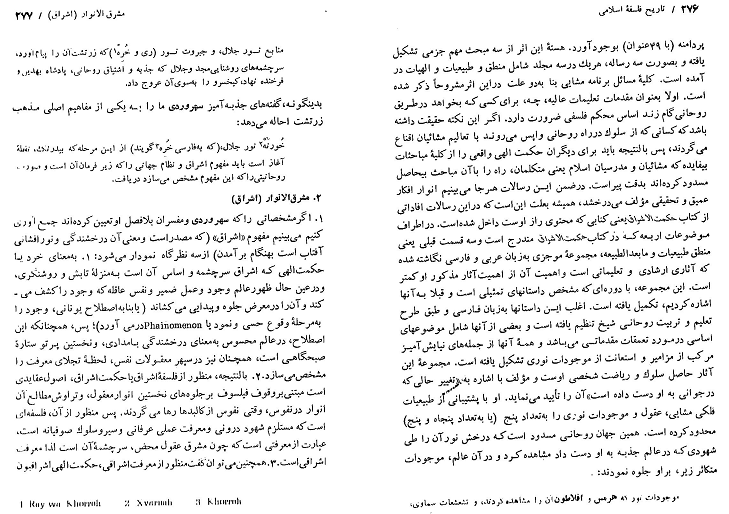 ۲۷۶ / تاریخ فلسفهٔ اسلامی
پردامنه (با ۴۹عنوان) بوجودآورد. هستهٔ این اثر از سه مبحث مهم جزمی تشکیل
یافته و بصورت سه رساله، هریك درسه مجلد شامل منطق و طبیعیات و الهیات در
آمده است. کلیهٔ مسائل برنامه مشایی بنا بدو علت دراین اثر مشروحاً ذکر شده
است. اولا بعنوان مقدمات تعلیمات عالیه، چه، برای کسی که بخواهد درطریق
روحانی گام زند اساس محکم فلسفی ضرورت دارد. اگر این نکته حقیقت داشته
باشد که کسانی که از سلوك درراه روحانی واپس می‌روند با تعالیم مشائیان اقناع
می‌گردند، پس بالنتیجه باید برای دیگران حکمت الهی واقعی را از کلیهٔ مباحثات
بیفایده که مشائیان و مدرسیان اسلام یعنی متکلمان، راه را با آن مباحث بیحاصل
مسدود کرده‌اند بدقت پیراست. درضمن این رسالات هرجا می‌بینیم انوار افکار
عمیق و تحقیقی مؤلف می‌درخشد، همیشه بعلت این است که دراین رسالات افاداتی
از کتاب حکمت‌الاشراق یعنی کتابی که محتوی راز اوست داخل شده‌است. دراطراف
موضوعات اربعه که در کتاب حکمت‌الاشراق مندرج است وسه قسمت قبلی یعنی
منطق طبیعیات و مابعدالطبیعه، مجموعهٔ موجزی به‌زبان عربی و فارسی نگاشته شده
که آثاری ارشادی و تعلیماتی است و اهمیت آن از اهمیت آثار مذکور او کمتر
است. این مجموعه، با دوره‌ای که مشخص داستانهای تمثیلی است و قبلا به‌آنها
اشاره کردیم، تکمیل یافته است. اغلب این داستانها به‌زبان فارسی و طبق طرح
تعلیم و تربیت روحانی شیخ تنظیم یافته است و بعضی از آنها شامل موضوعهای
اساسی درمورد تعمقات مقدماتی می‌باشد و همهٔ آنها از جمله‌های نیایش‌آمیز
مرکب از مزامیر و استعانت از موجودات نوری تشکیل یافته است. مجموعهٔ این
آثار حاصل سلوك و ریاضت شخصی اوست و مؤلف با اشاره به تغییر حالی که
درجوانی به او دست داده است آن را تأیید می‌نماید. او با پشتیبانی از طبیعیات
فلکی مشایی، عقول و موجودات نوری را به‌تعداد پنج (یا به‌تعداد پنجاه و پنج)
محدود کرده است. همین جهان روحانی مسدود است که درخش نور آن را طی
شهودی که درعالم جذبه به او دست داد مشاهده کرد و در آن عالم، موجودات
متکاثر زیر، براو جلوه نمودند:
موجودات نور که هرمس و افلاطون آن را مشاهده کردند، و تشعشعات سماوی،
مشرق الانوار (اشراق) / ۲۷۷
منابع نور جلال، و جبروت نور (ری و خره۱) که زرتشت آن را پیام‌آورد،
سرچشمه‌های روشنایی مجد وجلال که جذبه و اشتیاق روحانی، پادشاه بهدین و
فرخنده نهاد، کیخسرو را به‌سوی آن عروج داد.
بدینگونه، گفته‌های جذبه‌آمیز سهروردی ما را به یکی از مفاهیم اصلی مذهب
زرتشت احاله می‌دهد:
خورنه۲ نور جلال، (که به‌فارسی خره۳ گویند) از این مرحله که بیدرنگ، نقطهٔ
آغاز است باید مفهوم اشراق و نظام جهانی را که زیر فرمان آن است و صورت
روحانیتی را که این مفهوم مشخص می‌سازد دریافت.
۲. مشرق‌الانوار (اشراق)
۱. اگر مشخصاتی را که سهروردی و مفسران بلافصل او تعیین کرده‌اند جمع‌آوری
کنیم می‌بینیم مفهوم «اشراق» (که مصدر است و معنی آن درخشندگی و نورافشانی
آفتاب است بهنگام برآمدن) ازسه نظرگاه نمودار می‌شود: ۱. به‌معنی خرد یا
حکمت‌الهی که اشراق سرچشمه و اساس آن است به‌منزلهٔ تابش و روشنگری،
ودرعین حال ظهور عالم وجود وعمل ضمیر ونفس عاقله که وجود را کشف می-
کند و آن را درمعرض جلوه و پیدایی می‌کشاند (یا بنابه‌اصطلاح یونانی، وجود را
به‌مرحلهٔ وقوع حسی و نمود یا Phainomenon درمی آورد)؛ پس، همچنانکه این
اصطلاح، درعالم محسوس به‌معنای درخشندگی بامدادی، ونخستین پرتو ستارهٔ
صبحگاهی است، همچنان نیز درسپهر معقولات نفس، لحظهٔ تجلای معرفت را
مشخص می‌سازد. ۲. بالنتیجه، منظور از فلسفهٔ اشراق یا حکمت اشراق، اصول عقایدی
است مبتنی بر وقوف فیلسوف برجلوه‌های نخستین انوار معقول، وتراوش مطالع آن
انوار درنفوس، وقتی نفوس از کالبدها رها می‌گردند. پس منظور از آن، فلسفه‌ای
است که مستلزم شهود درونی و معرفت عملی عرفانی و سیروسلوك صوفیانه است،
عبارت از معرفتی است که چون مشرق عقول محض، سرچشمهٔ آن است لذا معرفت
اشراقی است. ۳. همچنین می‌توان گفت منظور از معرفت اشراقی، حکمت الهی اشراقیون
1 Ray wa Khorroh    2 Xvarnah    3 Khorroh